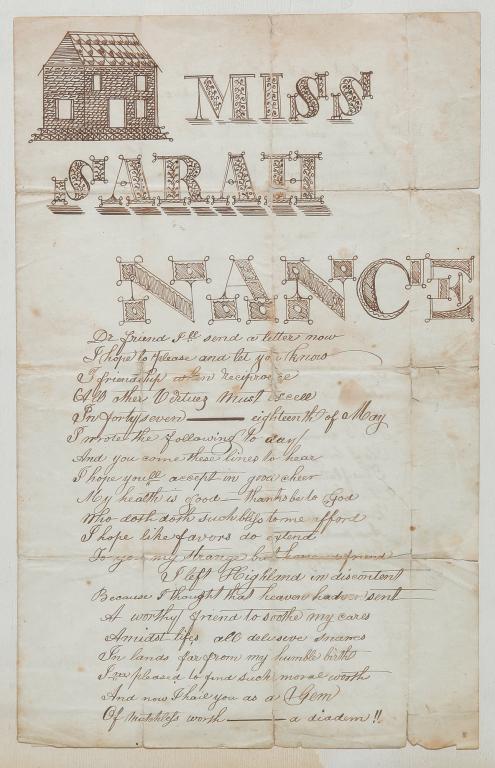 MISS
SARAH
NANCE
Dr friend I'll send a letter now
I hope to please and let you know
T friendship when reciprocee
All other Virtues must excell
In fortyseven —— eighteenth of May
I wrote the following to day
And you come these lines to hear
I hope you'll accept in good cheer
My health is good — thanks be to God
Who doth doth such bliss to me afford
I hope like favors do extend
To you my strange but friend
I left Highland in discontent
Because I thought that heaven had sent
A worthy friend to soothe my cares
Amidst lifes all delusive snares
In lands far from my humble birth
I'm pleased to find such moral worth
And now I hail you as a Gem
Of matchless worth —— a diadem !!